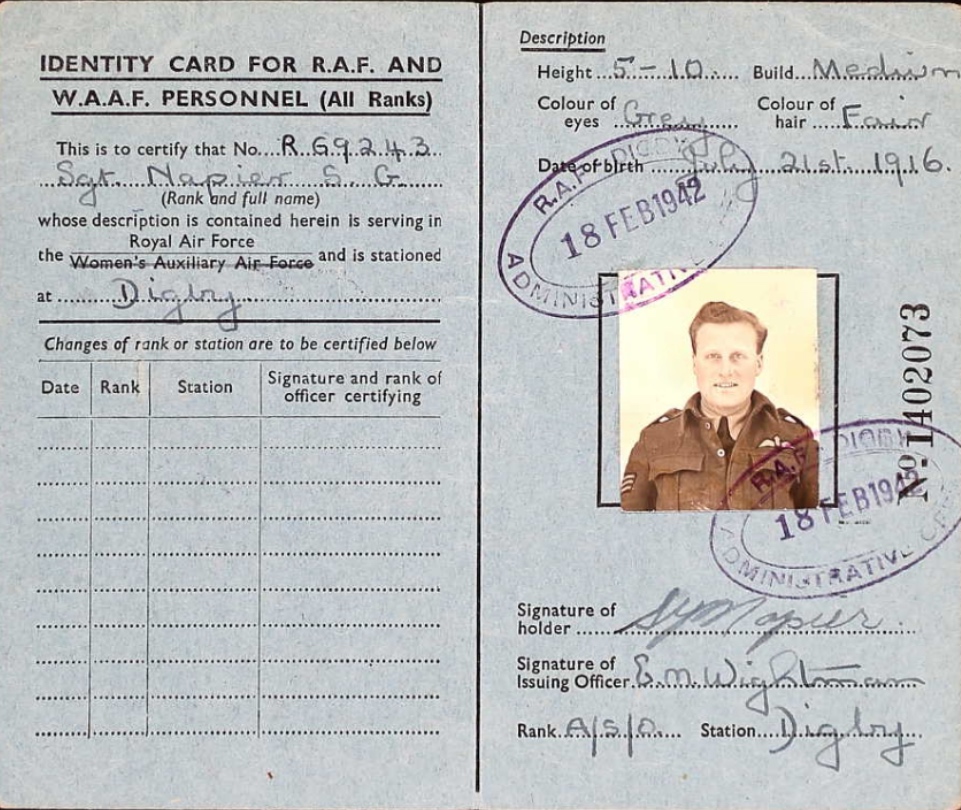 IDENTITY CARD FOR R.A.F. AND
W.A.A.F. PERSONNEL (All Ranks)
This is to certify that No. R.69243.
Sgt. Napier S. G.
(Rank and full name)
whose description is contained herein is serving in
Royal Air Force
the Women's Auxiliary Air Force and is stationed
at Digby
Changes of rank or station are to be certified below
Date Rank Station Signature and rank of
officer certifying
Description
Height 5-10. Build Medium
Colour of eyes Grey Colour of hair Fair
Date of birth July 21st. 1916.
R.A.F. DIGBY
18 FEB 1942
ADMINISTRATIVE
No. 1402073
R.A.F. DIGBY
18 FEB 1942
ADMINISTRATIVE
Signature of
holder SG Napier.
Signature of
Issuing Officer E.M. Wightman
Rank A/S/O. Station Digby